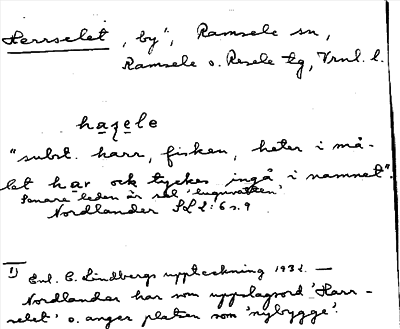 Herrselet, by¹⁾, Ramsele sn,
Ramsele o. Resele tg, Vrnl. l.
haṛẹle
"subst. harr, fisken, heter i må-
let har och tyckes ingå i namnet".
Senare leden är sel 'lugnvatten'
Nordlander SL 2:6 s. 9
1) Enl. C. Lindbergs uppteckning 1932. —
Nordlander har som uppslagsord 'Harr-
selet' o. anger platsen som 'nybygge'.